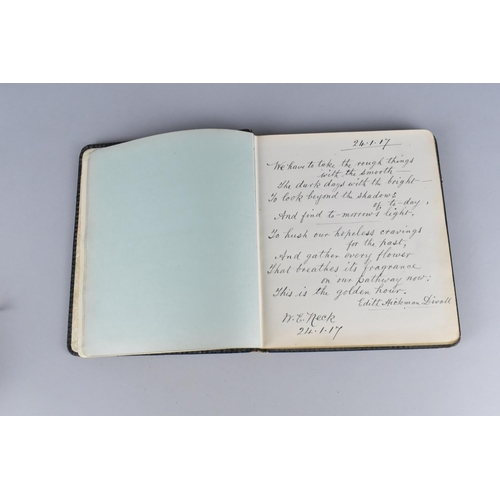 24·1·17
We have to take the rough things
with the smooth —
The dark days with the bright —
To look beyond the shadows
of to-day,
And find to-morrow's light.
To hush our hopeless cravings
for the past,
And gather every flower
That breathes its fragrance
on our pathway now:
This is the golden hour.
Edith Hickman Divall
W. E. Neck
24·1·17